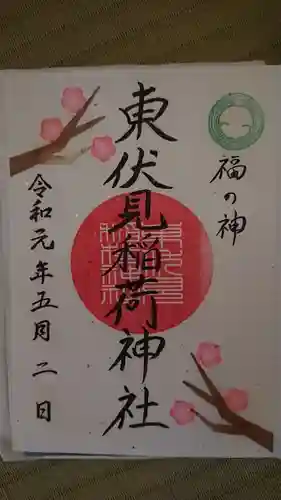 福の神
東伏見稲荷神社
令和元年五月二日